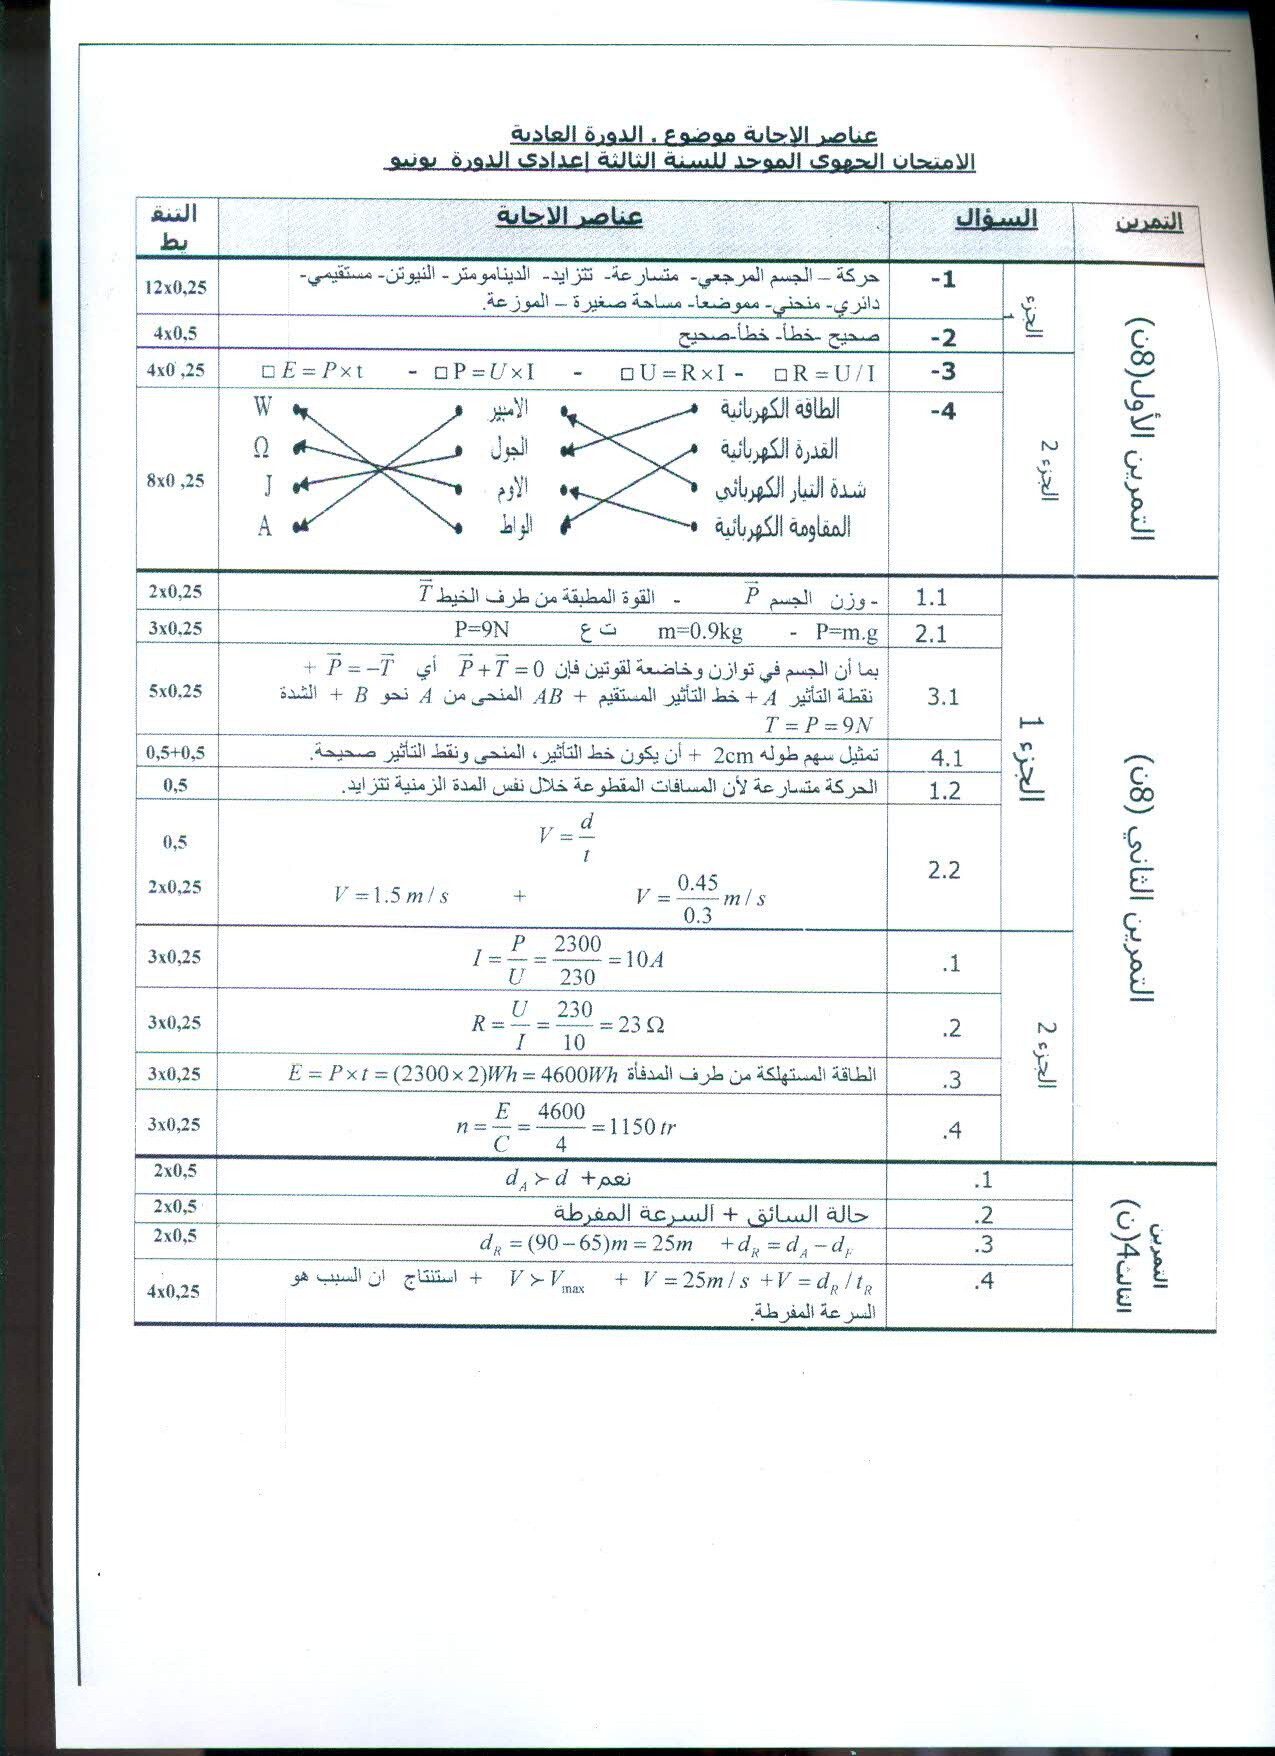 عناصر الإجابة موضوع . الدورة العادية
الامتحان الجهوي الموحد للسنة الثالثة إعدادي الدورة يونيو
التمرين السؤال عناصر الإجابة التنقيط
التمرين الأول(8ن)
الجزء 1
1- حركة – الجسم المرجعي- متسارعة- تتزايد- الدينامومتر- النيوتن- مستقيمي-
دائري- منحني- مموضعا- مساحة صغيرة – الموزعة. 12x0,25
2- صحيح -خطأ- خطأ-صحيح 4x0,5
الجزء 2
3- □ E = P×t - □ P = U×I - □ U = R×I - □ R = U/I 4x0 ,25
4- الطاقة الكهربائية الامبير W
القدرة الكهربائية الجول Ω
شدة التيار الكهربائي الاوم J 8x0 ,25
المقاومة الكهربائية الواط A
التمرين الثاني (8ن)
الجزء 1
1.1 - وزن الجسم P - القوة المطبقة من طرف الخيط T 2x0,25
2.1 P=m.g - m=0.9kg ت ع P=9N 3x0,25
3.1 بما أن الجسم في توازن وخاضعة لقوتين فإن P+T=0 أي P=-T +
نقطة التأثير A + خط التأثير المستقيم AB + المنحى من A نحو B + الشدة 5x0,25
T = P = 9N
4.1 تمثيل سهم طوله 2cm + أن يكون خط التأثير، المنحى ونقط التأثير صحيحة. 0,5+0,5
1.2 الحركة متسارعة لأن المسافات المقطوعة خلال نفس المدة الزمنية تتزايد. 0,5
2.2 V = d/t 0,5
V = 0.45/0.3 m/s + V = 1.5 m/s 2x0,25
الجزء 2
1. I = P/U = 2300/230 = 10A 3x0,25
2. R = U/I = 230/10 = 23 Ω 3x0,25
3. الطاقة المستهلكة من طرف المدفأة E = P×t = (2300×2)Wh = 4600Wh 3x0,25
4. n = E/C = 4600/4 = 1150 tr 3x0,25
التمرين الثالث4(ن)
1. نعم+ dA ≻ d 2x0,5
2. حالة السائق + السرعة المفرطة 2x0,5
3. dR = (90−65)m = 25m +dR = dA − dF 2x0,5
4. V = dR / tR + V = 25m/s + V ≻ Vmax + استنتاج ان السبب هو 4x0,25
السرعة المفرطة.